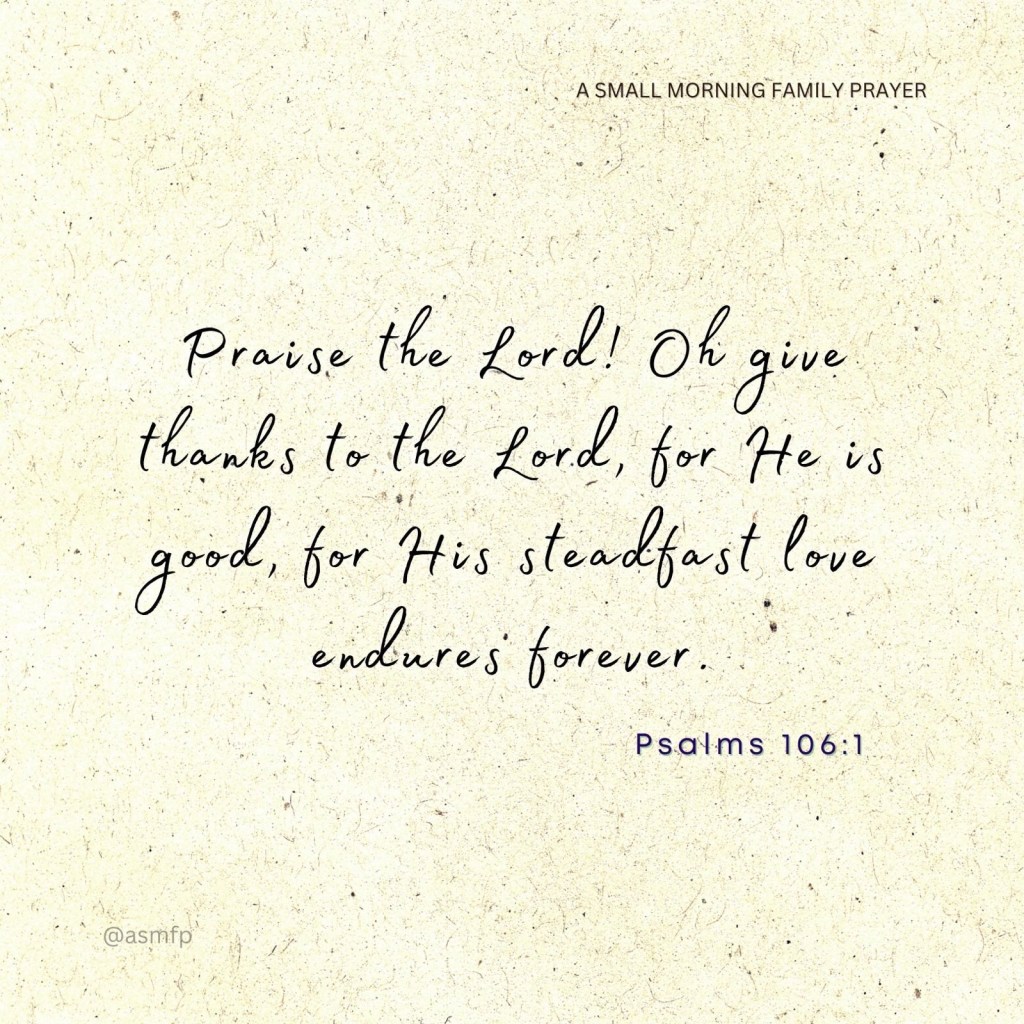 A SMALL MORNING FAMILY PRAYER
Praise the Lord! Oh give
thanks to the Lord, for He is
good, for His steadfast love
endures forever.
Psalms 106:1
@asmfp